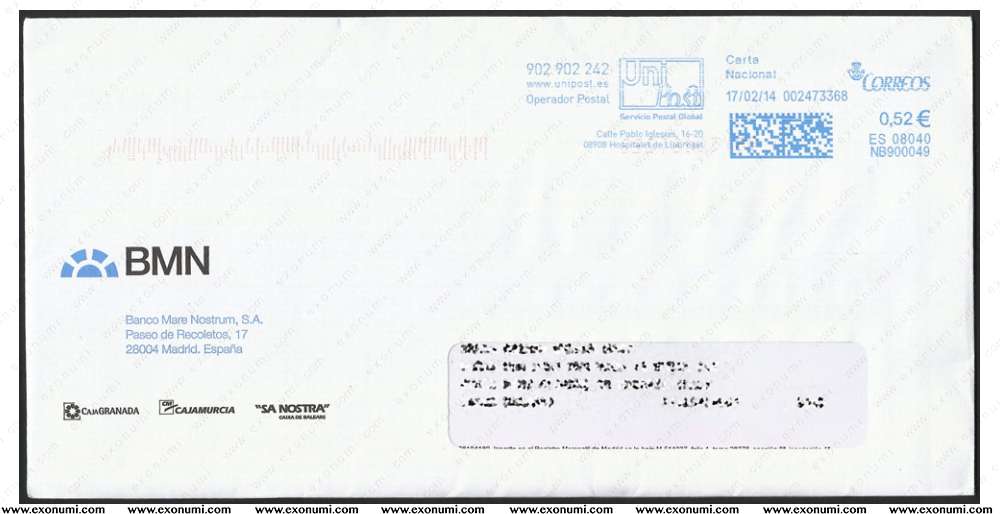 902 902 242
www.unipost.es
Operador Postal
Uni
Post
Servicio Postal Global
Calle Pablo Iglesias, 16-20
08908 Hospitalet de Llobregat
Carta
Nacional
17/02/14 002473368
CORREOS
0,52 €
ES 08040
NB900049
BMN
Banco Mare Nostrum, S.A.
Paseo de Recoletos, 17
28004 Madrid. España
CAJAGRANADA
CM CAJAMURCIA
"SA NOSTRA"
CAIXA DE BALEARS
www.exonumi.com www.exonumi.com www.exonumi.com www.exonumi.com www.exonumi.com www.exonumi.com www.exonumi.com www.exonumi.com